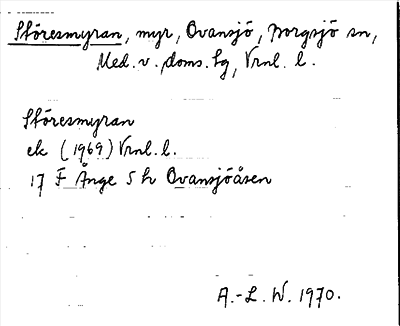 Storesmyran, myr, Ovansjö, Borgsjö sn,
Med. v. doms. hg, Vrnl. l.
Storesmyran
ek (1969) Vrnl. l.
17 F Ånge 5 h Ovansjöåsen
A.-L. W. 1970.